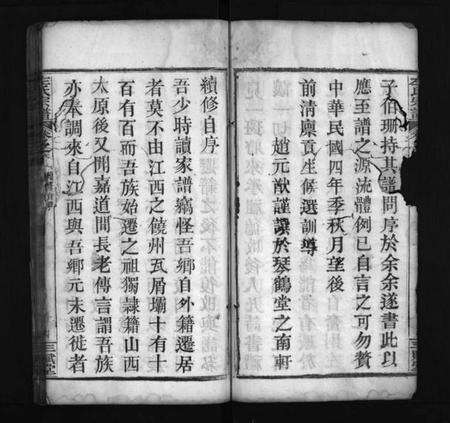 子伯珊持其譜問序於余余遂書此以
應至譜之源流體例已自言之可勿贅
中華民國四年季秋月望後
前清廩貢生候選訓導
趙元猷謹譔於琴鶴堂之南軒
續修自序
吾少時讀家譜竊怪吾鄉自外籍遷居
者莫不由江西之饒州瓦屑壩十有十
百有百而吾族始遷之祖獨隸籍山西
太原後又聞嘉道間長老傳言謂吾族
亦本調來自江西與吾鄉元末遷徙者